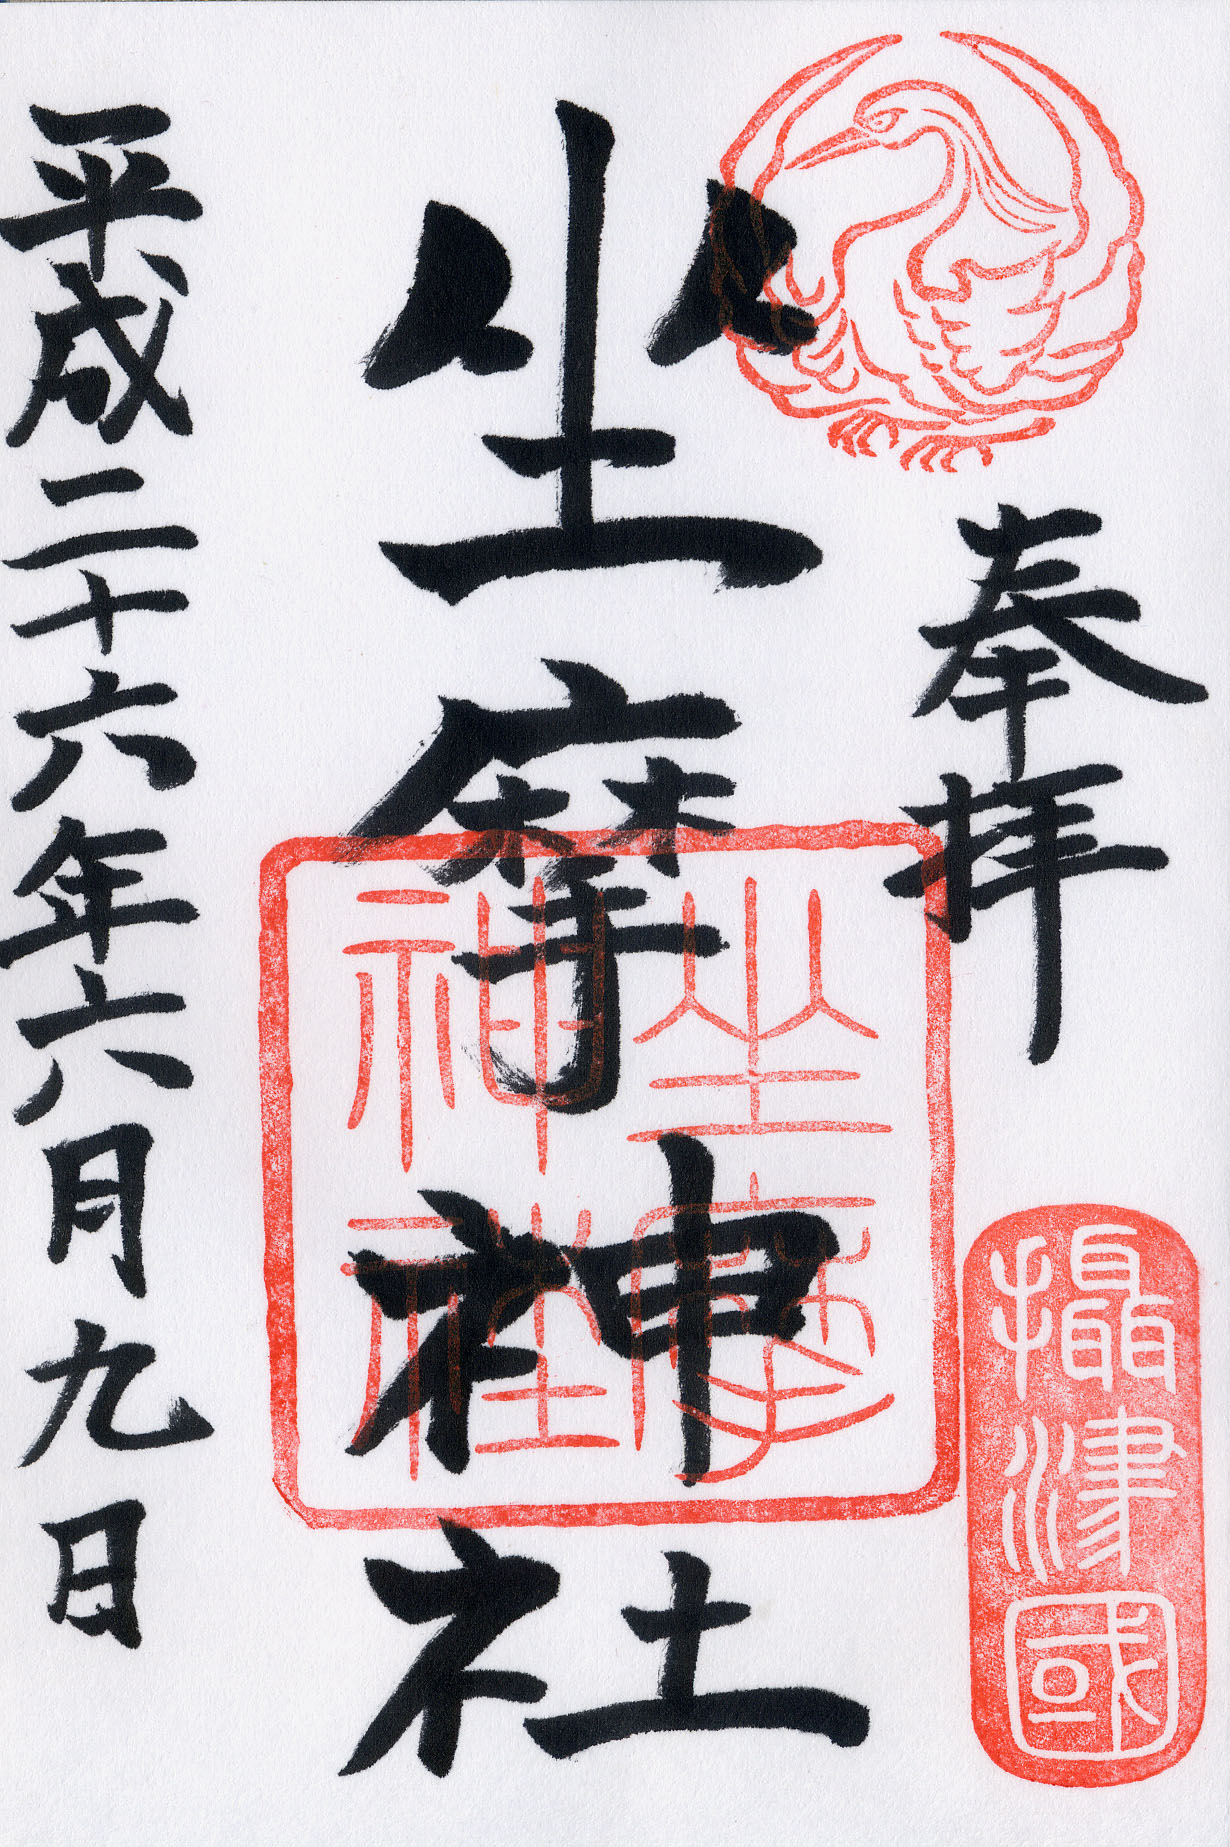 奉拝
攝津國
坐摩神社
坐摩
神社
平成二十六年六月九日